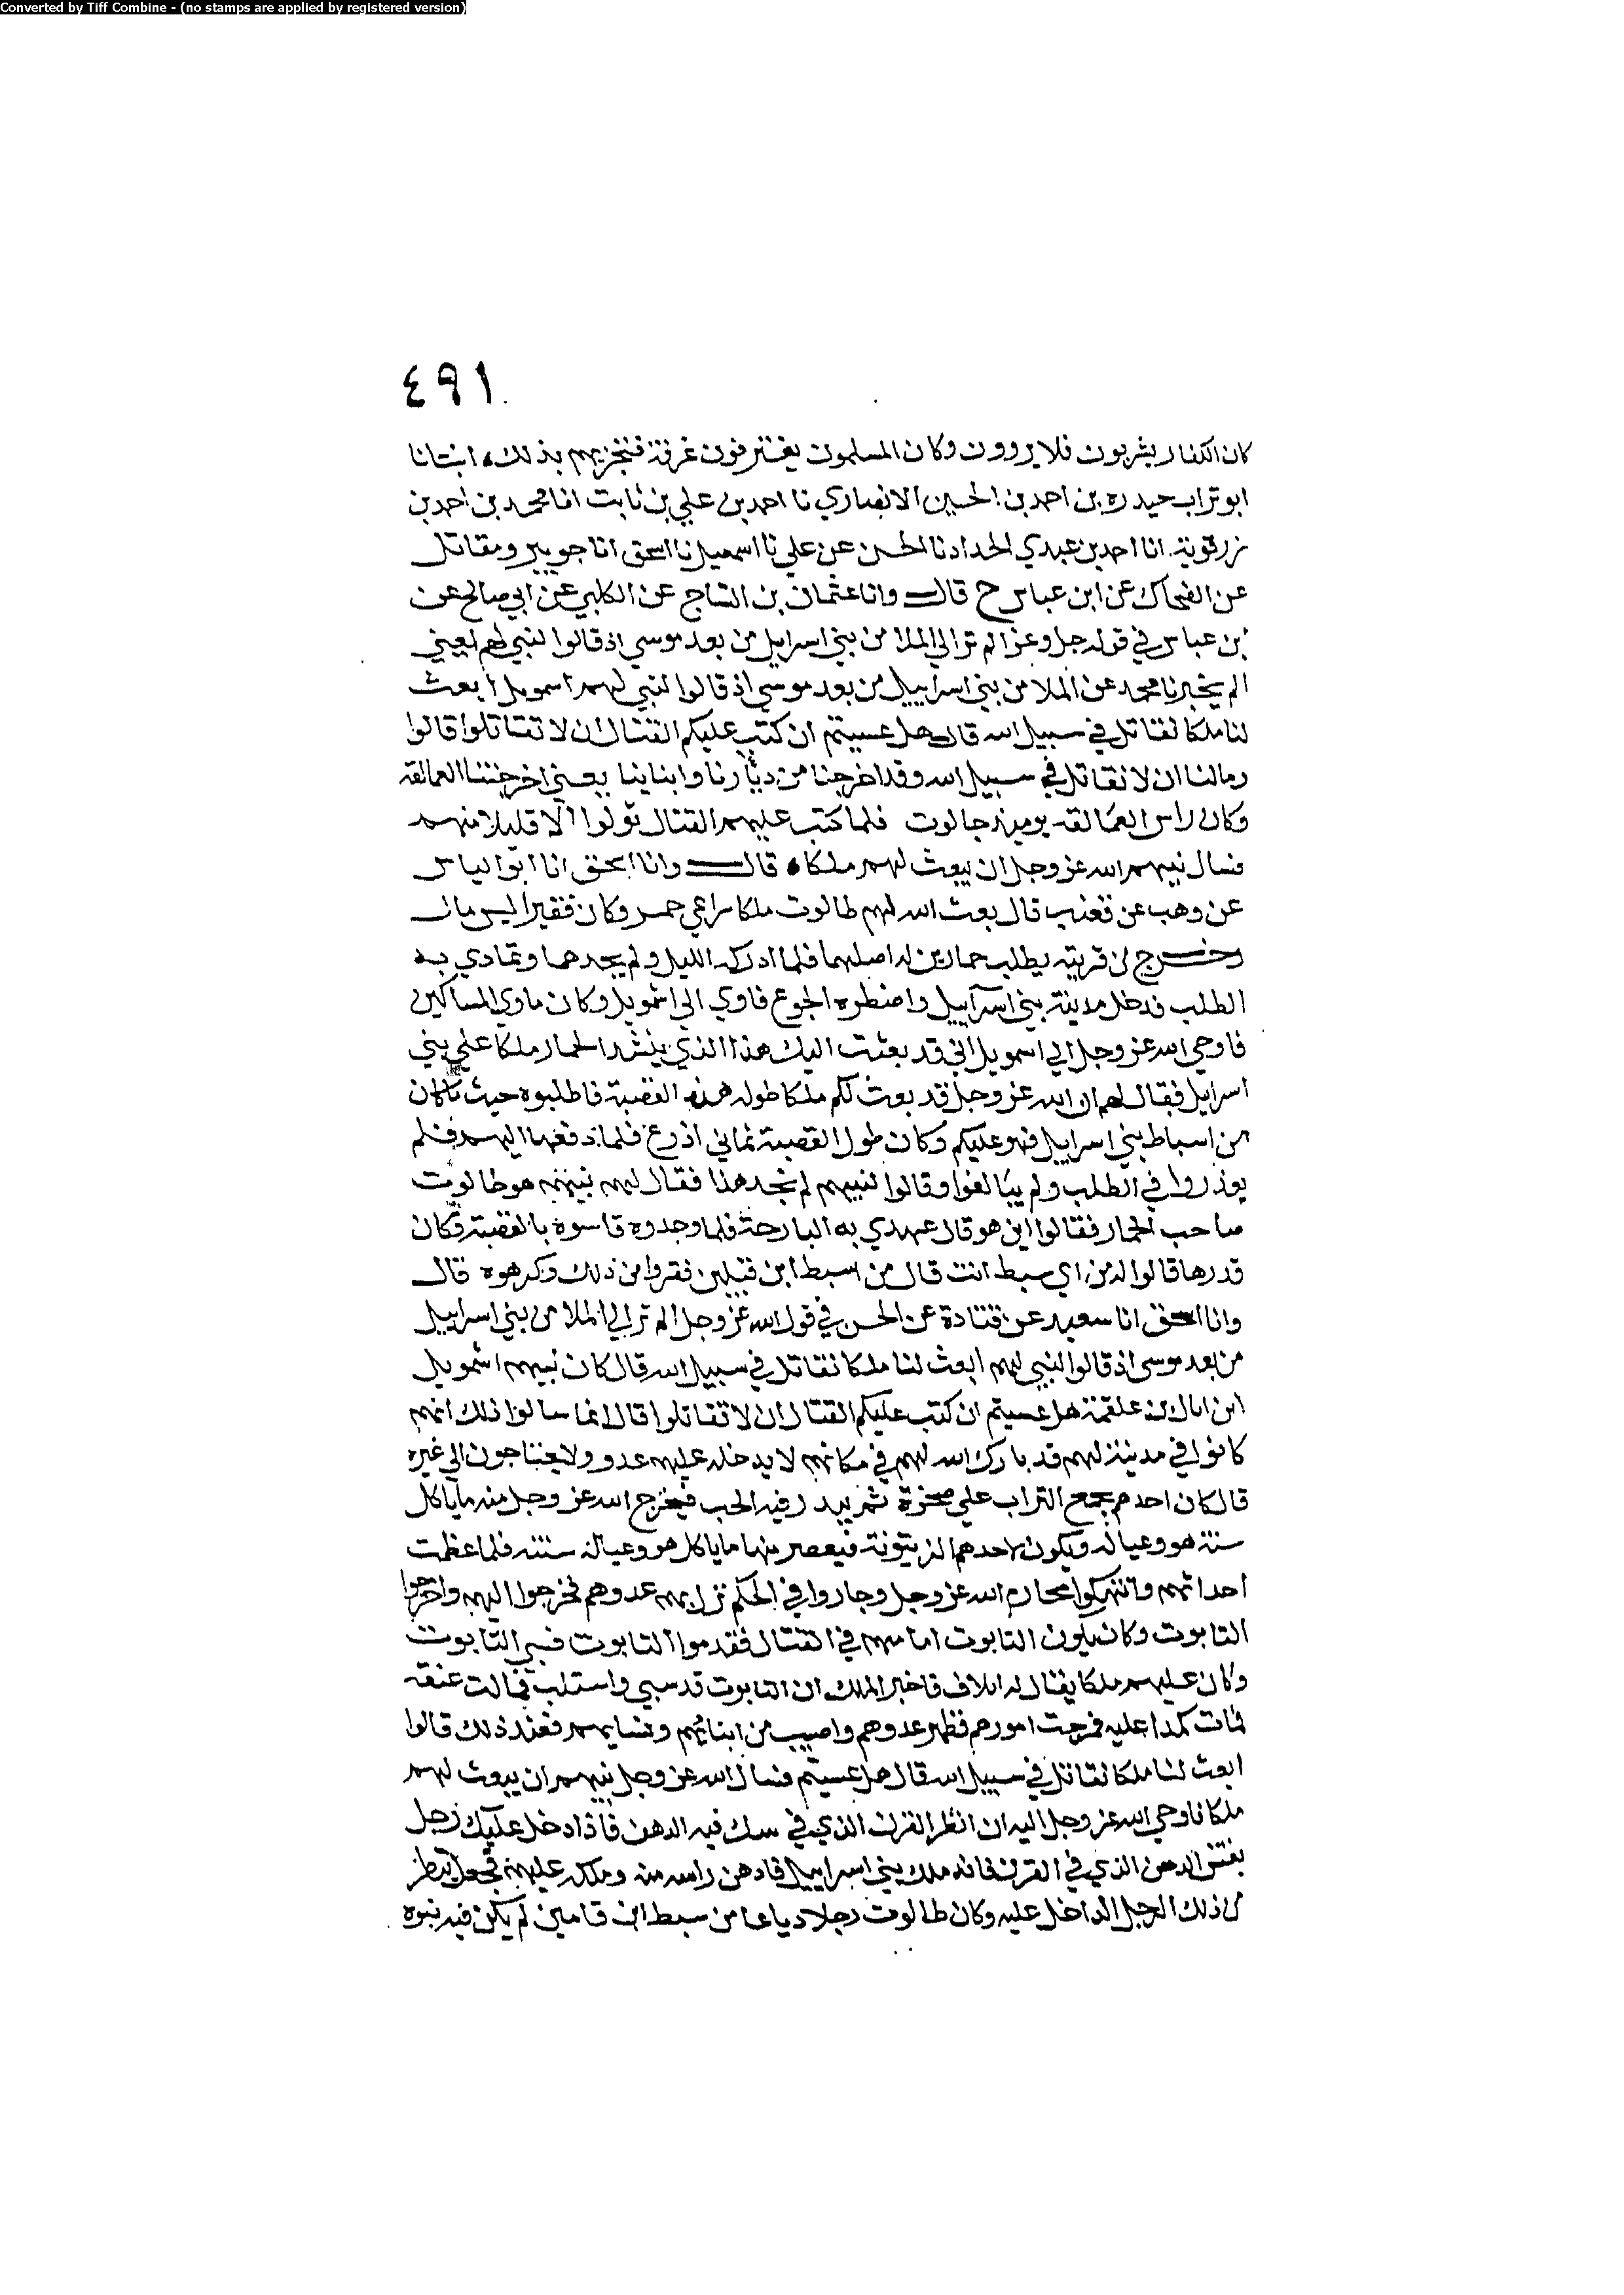 Converted by Tiff Combine - (no stamps are applied by registered version)
٤٩١
كان الكفار يشربون فلا يروون وكان المسلمون يغترفون غرفة فتجزيهم بذلك، انبانا
ابو تراب حيدره بن احمد بن الحسين الانصاري نا احمد بن علي بن ثابت انا محمد بن احمد بن
زرقوية انا احمد بن عبدي الحداد نا الحسن عن علي نا اسمعيل نا اسحق انا جويبر ومقاتل
عن الضحاك عن ابن عباس ح قال وانا عثمان بن الساج عن الكلبي عن ابي صالح عن
بن عباس في قوله جل وعز الم تر الي الملا من بني اسرايل من بعد موسي اذ قالوا لنبي لهم يعني
الم يخبرنا محمد عن الملا من بني اسراييل من بعد موسي اذ قالوا لنبي لهم اسمويل ابعث
لنا ملكا نقاتل في سبيل الله قال هل عسيتم ان كتب عليكم القتال ان لا تقاتلوا قالوا
ومالنا ان لا نقاتل في سبيل الله وقد اخرجنا من ديارنا وابناينا يعني اخرجتنا العمالقه
وكان راس العمالقه يوميذ جالوت فلما كتب عليهم القتال تولوا الا قليلا منهم
فسال نبيهم الله عز وجل ان يبعث لهم ملكا ه قال وانا اسحق انا ابو الياس
عن وهب عن قعنب قال بعث الله لهم طالوت ملكا راعي حمر وكان فقيرا ليس مال
وخرج من قريته يطلب حمارين له اضلهما فلما ادركه الليل ولم يجدهما وتمادي به
الطلب فدخل مدينة بني اسراييل واضطره الجوع فاوي الي اشمويل وكان ماوي المساكين
فاوحي الله عز وجل الي اسمويل اني قد بعثت اليك هذا الذي ينشد الحمار ملكا علي بني
اسرايل فقال لهم ان الله عز وجل قد بعث لكم ملكا طوله هذه القصبة فاطلبوه حيث كان
من اسباط بني اسرايل فهو عليكم وكان طول القصبة ثماني اذرع فلما دفعها اليهم فلم
يعذروا في الطلب ولم يبالغوا وقالوا لنبيهم لم نجد هذا فقال لهم نبيهم هو طالوت
صاحب الحمار فقالوا اين هو قال عهدي به البارحة فلما وجدوه قاسوه بالقصبة فكان
قدرها قالوا له من اي سبط انت قال من اسبط ابن فقروا من ذلك وكرهوه قال
وانا اسحق انا سعيد عن قتادة عن الحسن في قول الله عز وجل الم تر الي الملا من بني اسراييل
من بعد موسى اذ قالوا لنبي لهم ابعث لنا ملكا نقاتل في سبيل الله قال كان نبيهم اشمويل
ابن علقمة هل عسيتم ان كتب عليكم القتال ان لا تقاتلوا قال انما سالوا ذلك انهم
كانوا في مدينة لهم قد بارك الله لهم في مكانهم لا يدخله عليهم عدو ولا يحتاجون الي غيره
قال كان احدهم يجمع التراب علي صخرة ثم يبدر فيه الحب فيخرج الله عز وجل منه ما ياكل
سنة هو وعياله ويكون لاحدهم الزيتونة فيعصر منها ما ياكل هو وعياله سنته فلما عظمت
احداثهم وانتهكوا محارم الله عز وجل وجاروا في الحكم نزل بهم عدوهم فخرجوا اليهم واخرجوا
التابوت وكان يكون التابوت امامهم في القتال فقدموا التابوت فسبي التابوت
وكان عليهم ملكا يقال له ايلاف فاخبر الملك ان التابوت قد سبي واستلب فمالت عنقه
فمات كمدا عليه فمرجت امورهم فظهر عدوهم واصيب من ابنائهم ونسايهم فعند ذلك قالوا
ابعث لنا ملكا نقاتل في سبيل الله قال هل عسيتم فسال الله عز وجل نبيهم ان يبعث لهم
ملكا فاوحي الله عز وجل اليه ان انظر القرن الذي في بيتك فيه الدهن فاذا دخل عليك رجل
الدهن الذي في القرن فانه ملك بني اسراييل فادهن راسه منه وملكه عليهم فجعل ينظر
من ذلك الرجل الداخل عليه وكان طالوت رجلا دباغا من سبط ابن يامين لم يكن فيه نبوه